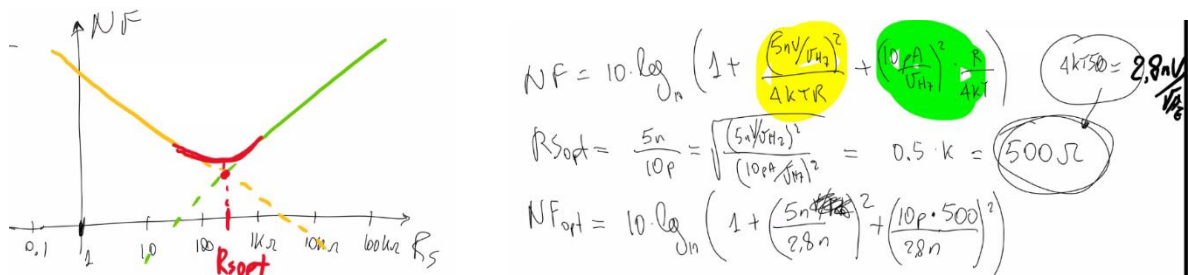 NF
0.1 1 10 100 1kΩ 10kΩ 100kΩ Rs
Rsopt
NF = 10·log₁₀ (1 + (5nV/√Hz)² / 4KTR + (10pA/√Hz)² · R/4kT)
4KT500 = 2,8nV/√Hz
RSopt = 5n/10p = √((5nV/√Hz)² / (10pA/√Hz)²) = 0.5·k = 500Ω
NFopt = 10·log₁₀ (1 + (5n/2,8n)² + (10p·500/2,8n)²)